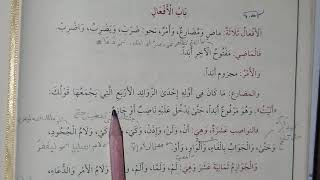 بَابُ الْأَفْعَالِ
الْأَفْعَالُ ثَلَاثَةٌ: مَاضٍ وَمُضَارِعٌ، وَأَمْرٌ، نَحْوُ: ضَرَبَ، وَيَضْرِبُ، وَاضْرِبْ.
فَالْمَاضِي: مَفْتُوحُ الْآخِرِ أَبَداً.
وَالْأَمْرُ: مَجْزُومٌ أَبَداً.
وَالْمُضَارِعُ: مَا كَانَ فِي أَوَّلِهِ إِحْدَى الزَّوَائِدِ الْأَرْبَعِ الَّتِي يَجْمَعُهَا قَوْلُكَ:
«أَنَيْتُ». وَهُوَ مَرْفُوعٌ أَبَداً، حَتَّى يَدْخُلَ عَلَيْهِ نَاصِبٌ أَوْ
فَالنَّوَاصِبُ عَشَرَةٌ، وَهِيَ: أَنْ، وَلَنْ، وَإِذَنْ، وَكَيْ، وَلَامُ كَيْ، وَلَامُ الْجُحُودِ،
وَحَتَّى، وَالْجَوَابُ بِالْفَاءِ، وَالْوَاوِ، وَأَوْ.
وَالْجَوَازِمُ ثَمَانِيَةَ عَشَرَ، وَهِيَ: لَمْ، وَلَمَّا، وَأَلَمْ، وَلَامُ الْأَمْرِ، وَالدُّعَاءِ،